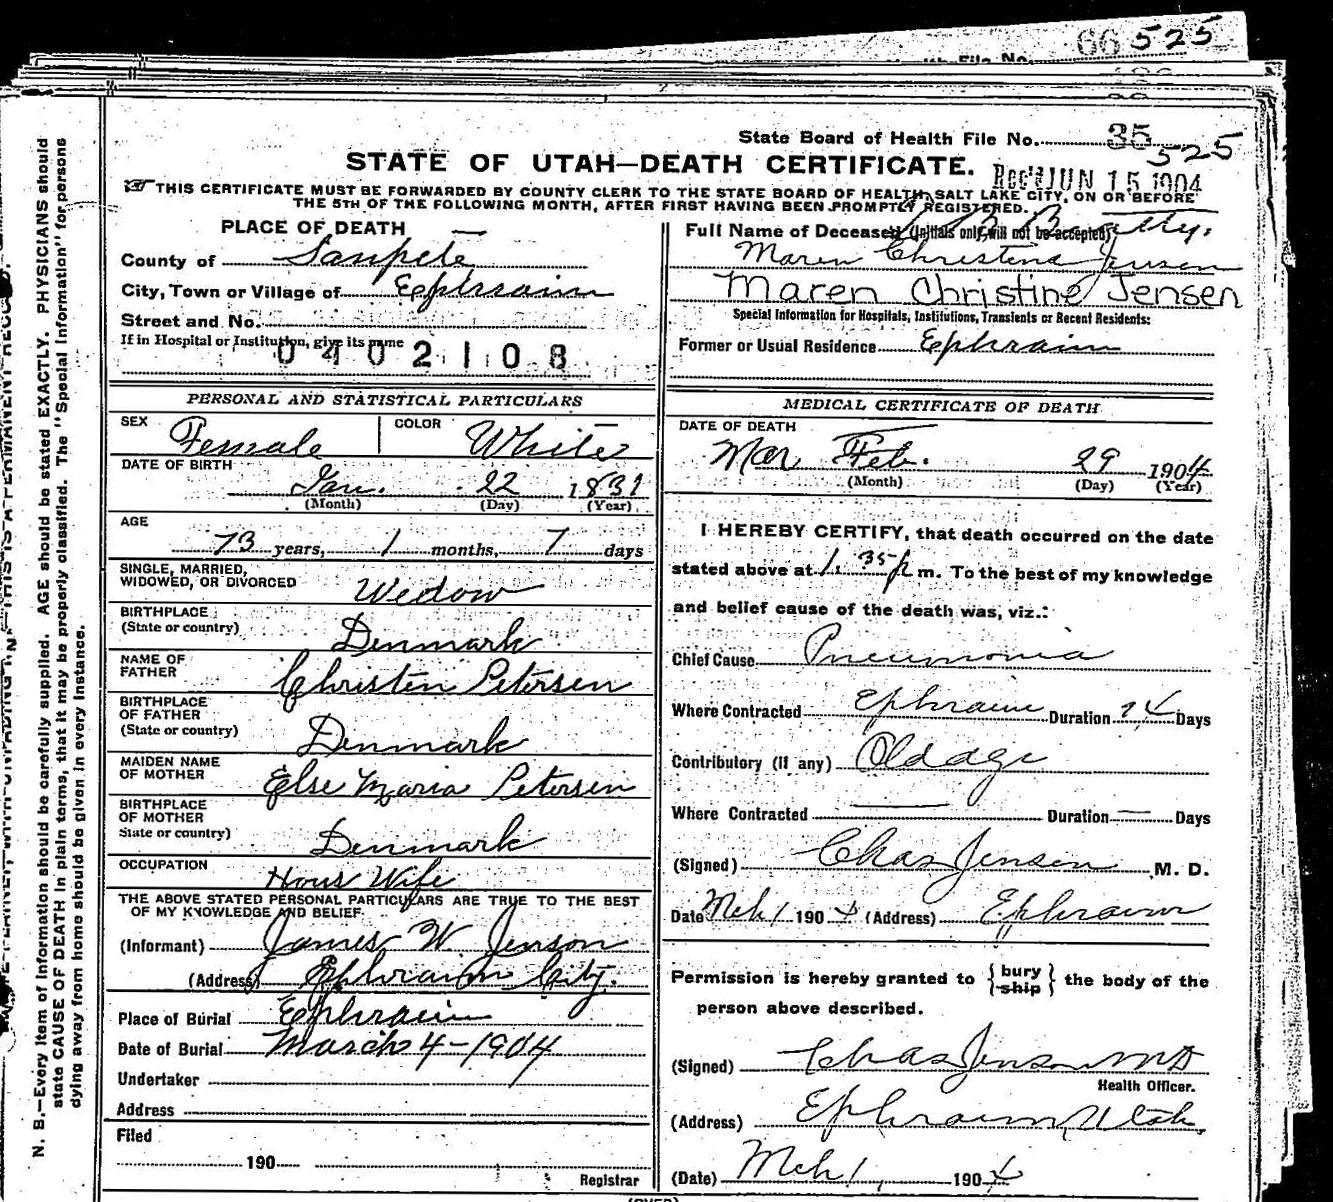 66 525
State Board of Health File No. 35
525
STATE OF UTAH—DEATH CERTIFICATE.
Rec'd JUN 15 1904
THIS CERTIFICATE MUST BE FORWARDED BY COUNTY CLERK TO THE STATE BOARD OF HEALTH, SALT LAKE CITY, ON OR BEFORE
THE 5TH OF THE FOLLOWING MONTH, AFTER FIRST HAVING BEEN PROMPTLY REGISTERED.
PLACE OF DEATH
County of Sanpete
City, Town or Village of Ephraim
Street and No.
If in Hospital or Institution, give its name
0402108
Full Name of Deceased (Initials only will not be accepted)
Maren Christena Jensen
Maren Christine Jensen
Special Information for Hospitals, Institutions, Transients or Recent Residents:
Former or Usual Residence Ephraim
PERSONAL AND STATISTICAL PARTICULARS
SEX Female COLOR White
DATE OF BIRTH
Jan. 22 1831
(Month) (Day) (Year)
AGE
73 years, 1 months, 7 days
SINGLE, MARRIED,
WIDOWED, OR DIVORCED Wedow
BIRTHPLACE
(State or country) Denmark
NAME OF
FATHER Christen Petersen
BIRTHPLACE
OF FATHER
(State or country) Denmark
MAIDEN NAME
OF MOTHER Else Maria Petersen
BIRTHPLACE
OF MOTHER
State or country) Denmark
OCCUPATION Hous Wife
THE ABOVE STATED PERSONAL PARTICULARS ARE TRUE TO THE BEST
OF MY KNOWLEDGE AND BELIEF.
(Informant) James W Jenson
(Address) Ephraim City.
Place of Burial Ephraim
Date of Burial March 4-1904
Undertaker
Address
Filed
190
Registrar
MEDICAL CERTIFICATE OF DEATH
DATE OF DEATH
Mar Feb. 29 1904
(Month) (Day) (Year)
I HEREBY CERTIFY, that death occurred on the date
stated above at 1.35 p m. To the best of my knowledge
and belief cause of the death was, viz.:
Chief Cause Pneumonia
Where Contracted Ephraim Duration Days
Contributory (If any) Old age
Where Contracted Duration Days
(Signed) Chas Jensen M. D.
Date Mch 1 1904 (Address) Ephraim
Permission is hereby granted to {bury
ship} the body of the
person above described.
(Signed) Chas Jenson MD
Health Officer.
(Address) Ephraim, Utah.
(Date) Mch 1, 1904
(OVER)
N. B.—Every item of Information should be carefully supplied. AGE should be stated EXACTLY. PHYSICIANS should
state CAUSE OF DEATH in plain terms, that it may be properly classified. The "Special Information" for persons
dying away from home should be given in every instance.